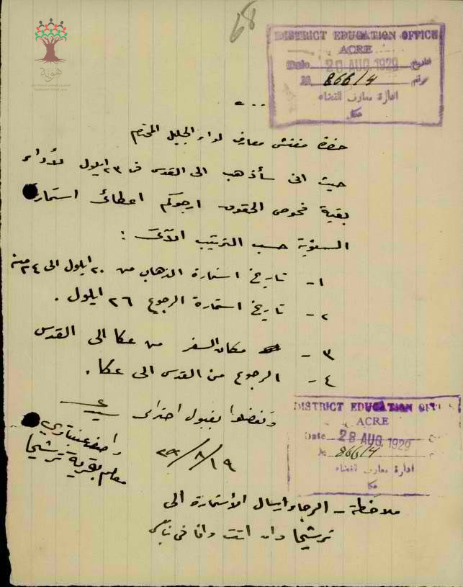 68
DISTRICT EDUCATION OFFICE
ACRE
Date 20 AUG 1929 تاريخ
№ 866/4 رقم
ادارة معارف القضاء
عكا
حضرة مفتش معارف لواء الجليل المحترم
حيث اني سأذهب الى القدس في ٢٣ ايلول لأداء
بقية فحوص الحقوق ارجوكم اعطائي استمارة
السفرية حسب الترتيب الآتي :
١- تاريخ استمارة الذهاب من ٢٠ ايلول الى ٢٤ منه
٢- تاريخ استمارة الرجوع ٢٦ ايلول .
٣- مكان السفر من عكا الى القدس
٤- الرجوع من القدس الى عكا .
وتفضلوا بقبول احترامي سيدي
معلم بقرية ترشيحا
١٩/٨/٢٩
DISTRICT EDUCATION OFFICE
ACRE
Date 28 AUG 1929
№ 866/4
ادارة معارف القضاء
ملاحظة - الرجاء ارسال الأستمارة الى
ترشيحا وان انت وانا في